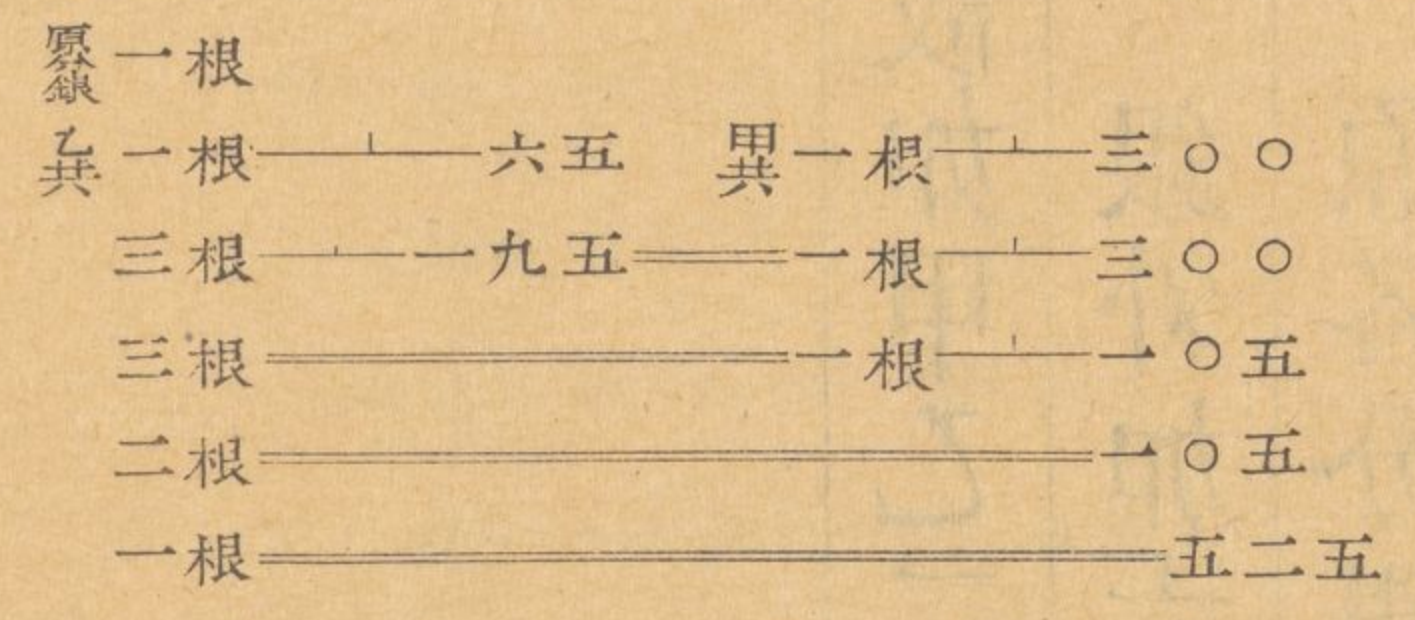 原分銀 一根
乙共 一根⊥六五 甲共 一根⊥三〇〇
三根⊥一九五══一根⊥三〇〇
三根══一根⊥一〇五
二根══一〇五
一根══五二五